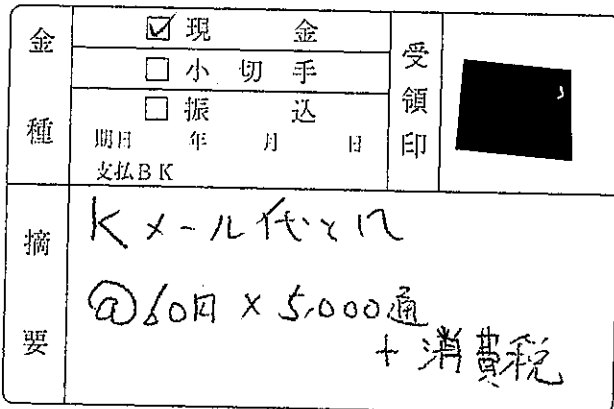 金種
☑ 現金
☐ 小切手
☐ 振込
期日 年 月 日
支払BK
受領印
摘要
Kメール代として
@60円×5,000通
+消費税